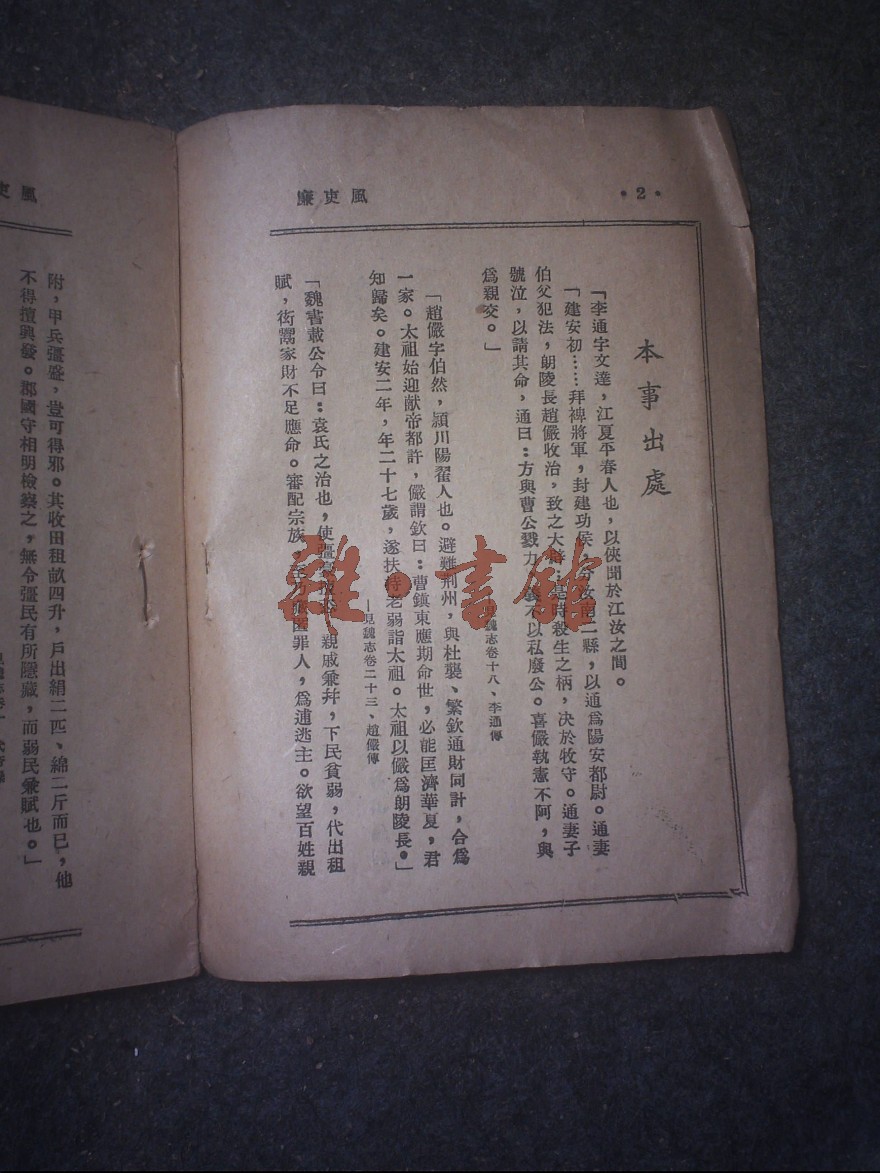 廉吏風
*2*
本事出處
「李通字文達，江夏平春人也，以俠聞於江汝之間。
「建安初……拜裨將軍，封建功侯，分汝南二縣，以通爲陽安都尉。通妻
伯父犯法，朗陵長趙儼收治，致之大辟，是時殺生之柄，決於牧守。通妻子
號泣，以請其命，通曰：方與曹公戮力，義不以私廢公。喜儼執憲不阿，與
爲親交。」
見魏志卷十八、李通傳
「趙儼字伯然，潁川陽翟人也。避難荆州，與杜襲、繁欽通財同計，合爲
一家。太祖始迎献帝都許，儼謂欽曰：曹鎮東應期命世，必能匡濟華夏，君
知歸矣。建安二年，年二十七歲，遂扶持老弱詣太祖。太祖以儼爲朗陵長。」
—見魏志卷二十三、趙儼傳
「魏書載公令曰：袁氏之治也，使彊 親戚兼并，下民貧弱，代出租
賦，衒鬻家財不足應命。審配宗族， 罪人，爲逋逃主。欲望百姓親
吏風
附，甲兵彊盛，豈可得邪。其收田租畝四升，戶出絹二匹、綿二斤而已，他
不得擅興發。郡國守相明檢察之，無令彊民有所隱藏，而弱民兼賦也。」
雜·書館